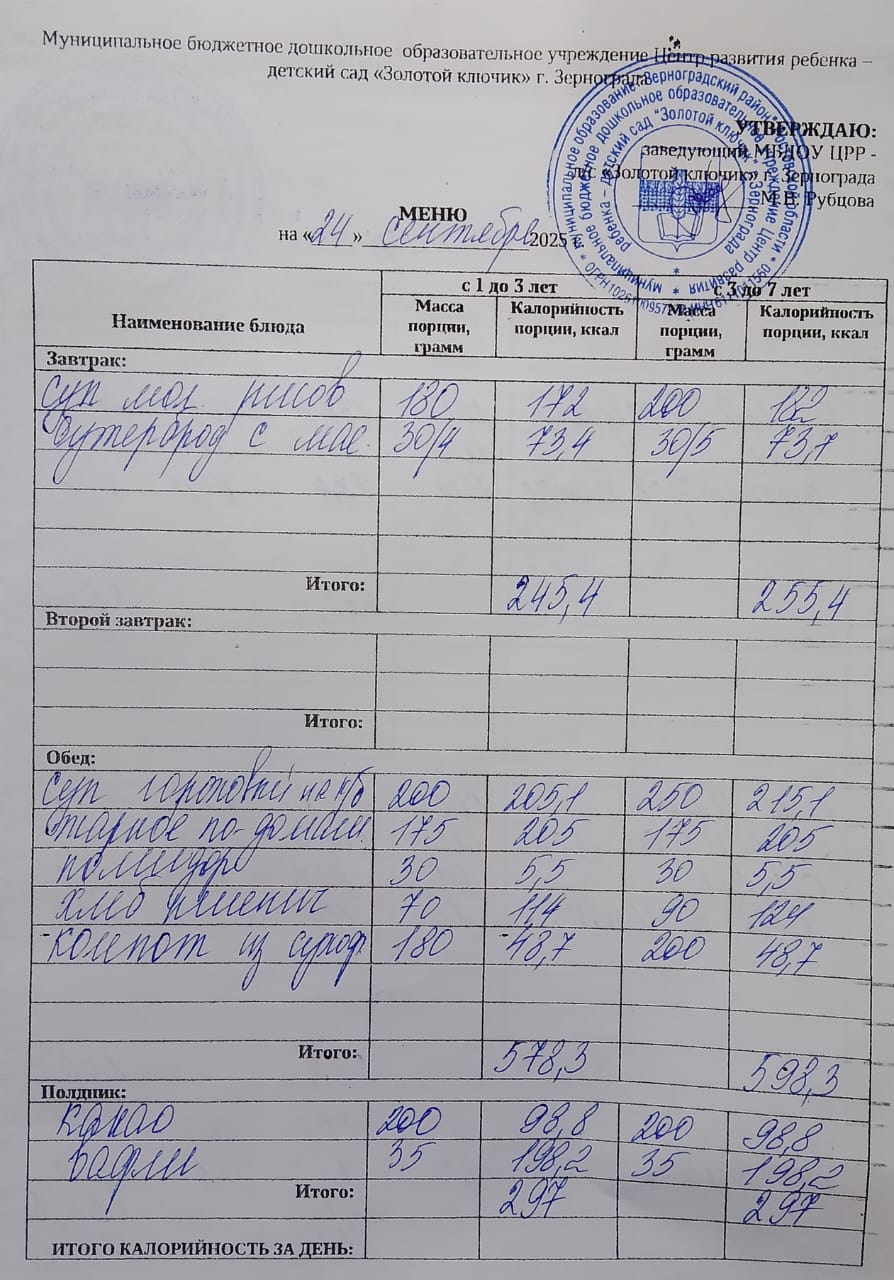 Муниципальное бюджетное дошкольное образовательное учреждение Центр развития ребенка –
детский сад «Золотой ключик» г. Зернограда
УТВЕРЖДАЮ:
заведующий МБДОУ ЦРР -
д/с «Золотой ключик» г. Зернограда
М.В. Рубцова
МЕНЮ
на «24» сентябрь 2025 г.
Наименование блюда с 1 до 3 лет с 3 до 7 лет
Масса порции, грамм Калорийность порции, ккал Масса порции, грамм Калорийность порции, ккал
Завтрак:
Суп мол рисов 180 172 200 182
Бутерброд с мас. 30/4 73,4 30/5 73,7
Итого: 245,4 255,4
Второй завтрак:
Итого:
Обед:
Суп гороховый 200 205,1 250 215,1
Жаркое по-домаш. 175 205 175 205
помидор 30 5,5 30 5,5
хлеб пшенич 70 114 90 124
компот из сухоф. 180 48,7 200 48,7
Итого: 578,3 598,3
Полдник:
какао 200 98,8 200 98,8
вафли 35 198,2 35 198,2
Итого: 297 297
ИТОГО КАЛОРИЙНОСТЬ ЗА ДЕНЬ: